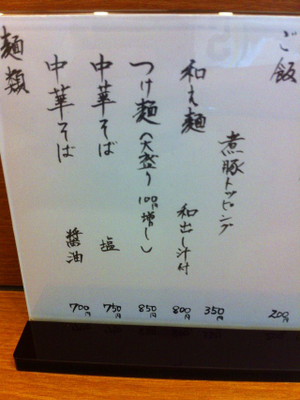 麺類
中華そば 醤油 700円
中華そば 塩 750円
つけ麺(大盛り100円増し) 850円
和え麺 和出し汁付 800円
煮豚トッピング 350円
ご飯 200円